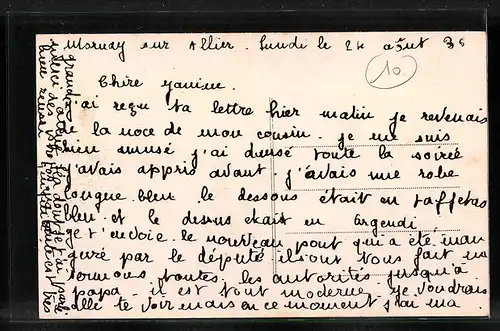 Mornay sur Allier. Lundi le 24 août 36
10
Chère Janine.
j'ai reçu ta lettre hier matin je revenais
de la noce de mon cousin. je me suis
bien amusé j'ai dansé toute la soirée
j'avais appris avant. j'avais une robe
longue bleu le dessous était en taffetas
bleu et le dessus était en organdi
je t'envoie le nouveau pont qui a été inau
guré par le député ils ont tous fait un
toutes. les autorités jusqu'à
papa. il est tout moderne. je voudrais
allé te voir mais en ce moment j'ai ma